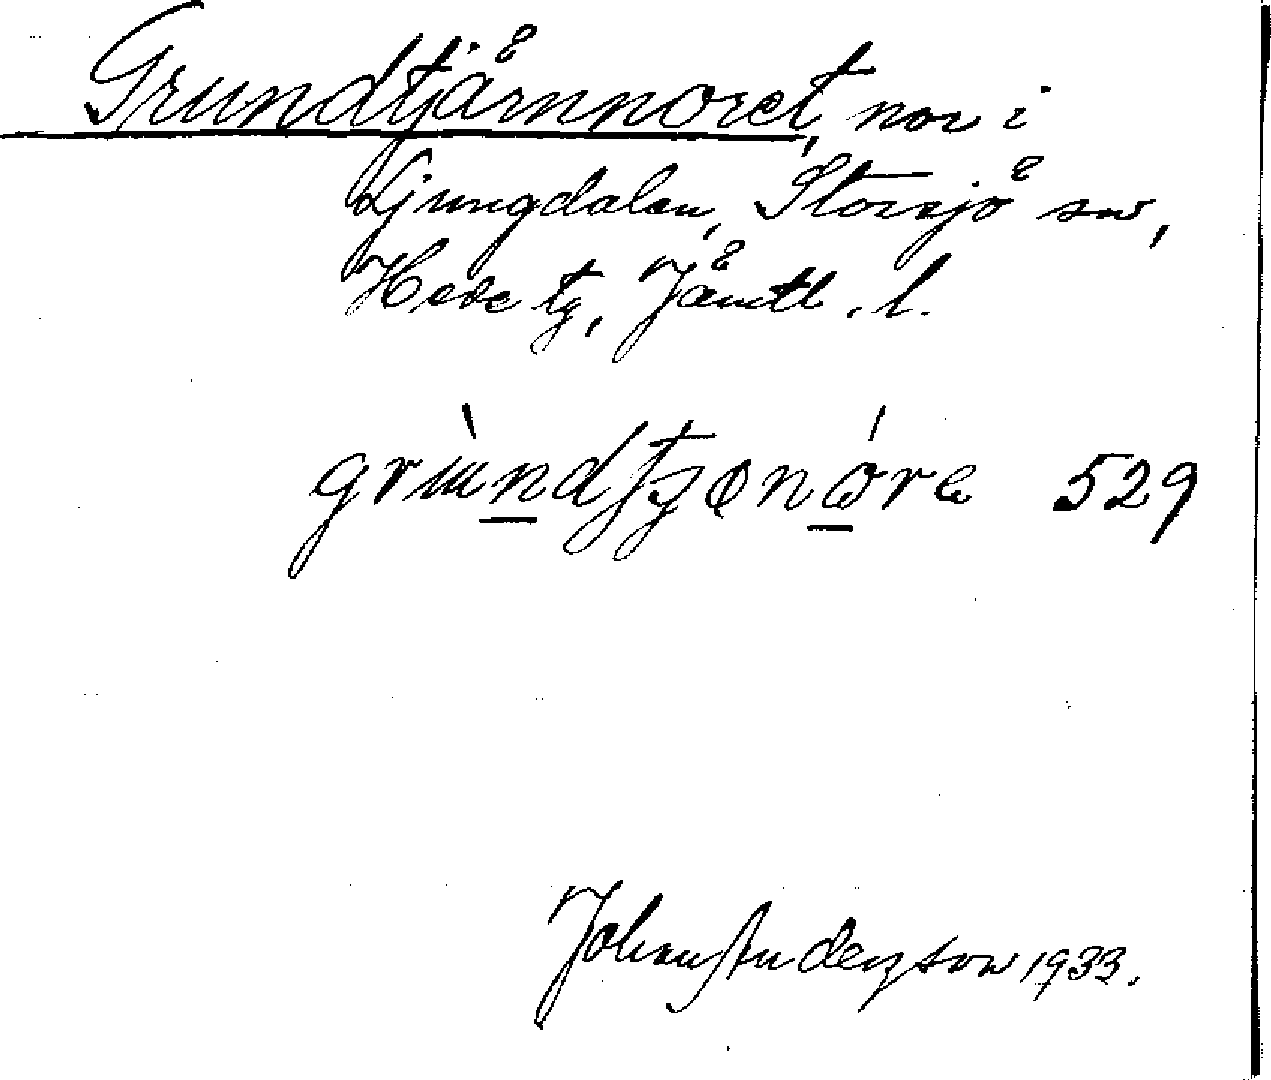 Grundtjärnnoret, nor i
Ljungdalen, Storsjö sn,
Hede tg, Jämtl. l.
529
Johan Anderzson 1933.